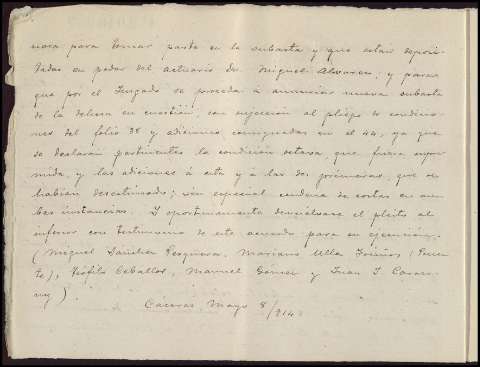 para tomar parte en la subasta y que están deposi-
tadas en poder del actuario Dr. Miguel Alvarez; y para
que por el Juzgado se proceda á anunciar nueva subasta
de la dehesa en cuestión, con sujeción al pliego de condicio-
nes del folio 38 y adiciones consignadas en el 44, ya que
se declaran pertinentes la condición octava, que fuera supri-
mida, y las adiciones á esta y á las dos primeras, que se
habían desestimado; sin especial condena de costas en am-
bas instancias. Y oportunamente devuélvase el pleito al
inferior con testimonio de este acuerdo para su ejecución.
(Miguel Sánchez Pesquera, Mariano Ulla
Teófilo Ceballos, Manuel Gómez y Juan J.
Cáceres Mayo 8/914